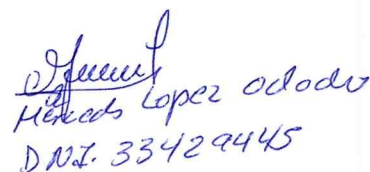 Mercedes Lopez
D.N.I. 33429445